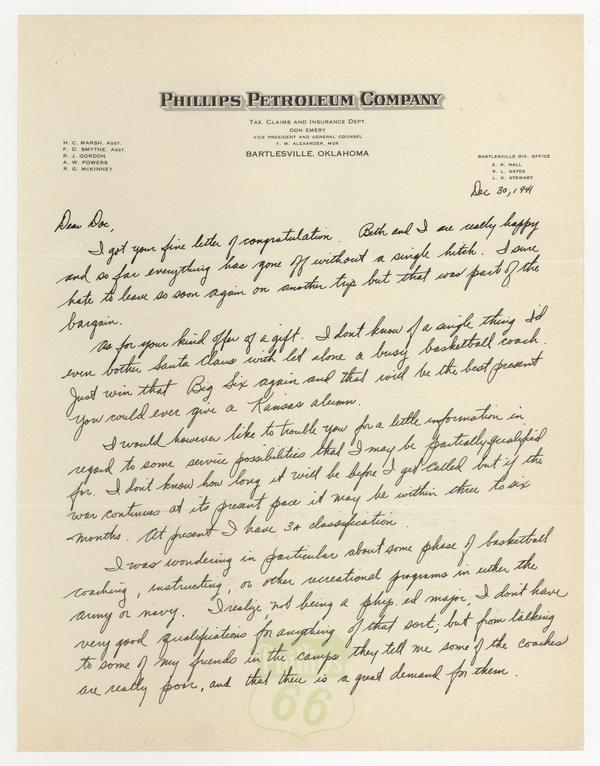 PHILLIPS PETROLEUM COMPANY
TAX, CLAIMS AND INSURANCE DEPT.
DON EMERY
VICE PRESIDENT AND GENERAL COUNSEL
F. W. ALEXANDER, MGR
BARTLESVILLE, OKLAHOMA
H. C. MARSH, ASST.
F. D. SMYTHE, ASST.
R. J. GORDON
A. W. POWERS
R. G. McKINNEY
BARTLESVILLE DIV. OFFICE
E. R. NALL
R. L. GATES
L. K. STEWART
Dec 30, 1941
Dear Doc,
I got your fine letter of congratulation. Beth and I are really happy
and so far everything has gone off without a single hitch. I sure
hate to leave so soon again on another trip but that was part of the
bargain.
As for your kind offer of a gift. I don't know of a single thing I'd
even bother Santa Claus with let alone a busy basketball coach.
Just win that Big Six again and that will be the best present
you could ever give a Kansas alumn.
I would however like to trouble you for a little information in
regard to some service possibilities that I may be partially qualified
for. I don't know how long it will be before I get called but if the
war continues at its present pace it may be within three to six
months. At present I have 3A classification.
I was wondering in particular about some phase of basketball
coaching, instructing, or other recreational programs in either the
army or navy. I realize, not being a phys. ed major, I don't have
very good qualifications for anything of that sort, but from talking
to some of my friends in the camps they tell me some of the coaches
are really poor, and that there is a great demand for them.
PHILLIPS
66